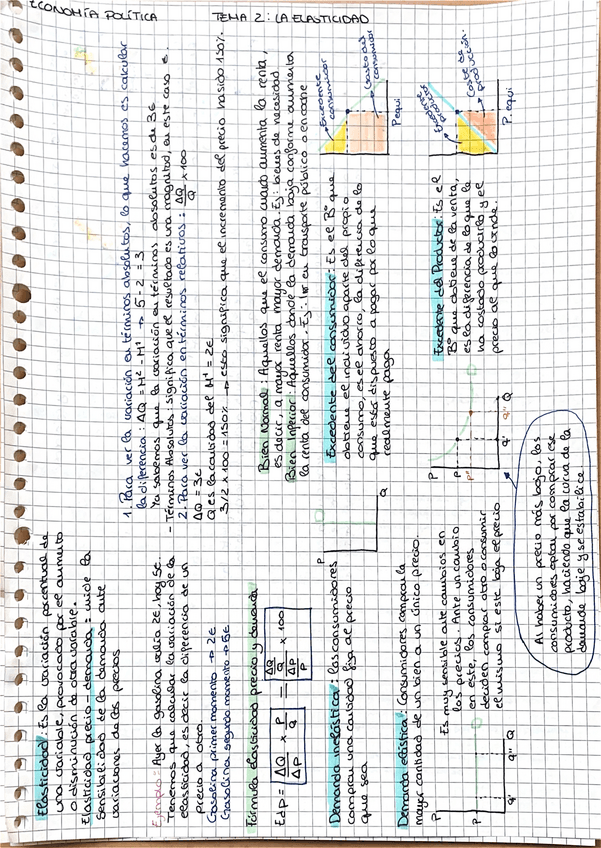 ECONOMÍA POLÍTICA
TEMA 2: LA ELASTICIDAD
Elasticidad: Es la variación porcentual de
una variable, provocado por el aumento
o disminución de otra variable.
Elasticidad precio-demanda = mide la
sensibilidad de la demanda ante
variaciones de los precios
Ejemplo: Ayer la gasolina valía 2€, hoy 5€.
Tenemos que calcular la variación de la
elasticidad, es decir la diferencia de un
precio a otro.
Gasolina primer momento → 2€
Gasolina segundo momento → 5€
Fórmula elasticidad precio y demanda
EdP = ΔQ/ΔP × P/Q = ΔQ/Q / ΔP/P × 100
Demanda inelástica: los consumidores
compran una cantidad fija al precio
que sea
P
Q
Demanda elástica: Consumidores compran la
mayor cantidad de un bien a un único precio.
Es muy sensible ante cambios en
los precios. Ante un cambio
en este, los consumidores
deciden comprar otro o consumir
el mismo si este baja el precio
P
Q' Q'' Q
P
P'
P''
Q' Q'' Q
Al haber un precio más bajo, los
consumidores optan por comprar ese
producto, haciendo que la curva de la
demanda baje y se estabilice
1. Para ver la variación en términos absolutos, lo que hacemos es calcular
la diferencia: ΔQ = M² - M¹ → 5 - 2 = 3
Ya sabemos que la variación en términos absolutos es de 3€
- Términos Absolutos: significa que el resultado es una magnitud, en este caso €.
2. Para ver la variación en términos relativos: ΔQ/Q × 100
ΔQ = 3€
Q es la cantidad del M¹ = 2€
3/2 × 100 = 150% → esto significa que el incremento del precio ha sido 150%.
Bien Normal: Aquellos que el consumo cuando aumenta la renta,
es decir, a mayor renta mayor demanda. Ej: bienes de necesidad
Bien Inferior: Aquellos donde la demanda baja conforme aumenta
la renta del consumidor. Ej: ir en transporte público o en coche
Excedente del consumidor: Es el Bº que
obtiene el individuo aparte del propio
consumo, es el ahorro, la diferencia de lo
que estás dispuesto a pagar por lo que
realmente paga
Excedente
consumidor
Gasto del
consumidor
P equi
Excedente del Productor: Es el
Bº que obtiene de la venta,
es la diferencia de lo que le
ha costado producirlo y el
precio al que la vende.
Coste de
producción
P. equi